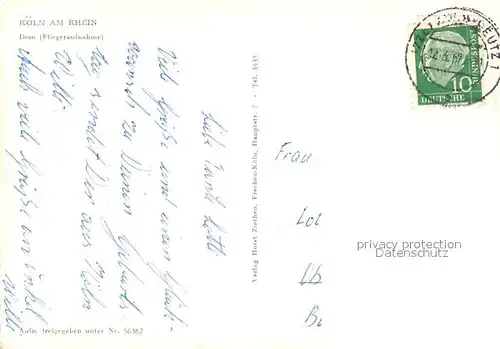 KÖLN AM RHEIN
Dom (Fliegeraufnahme)
Liebe Tante Lotti
Viel Grüße und einen Glück-
wunsch zu Deinem Geburts-
tag sendet Dir aus Köln
Willi
Auch viel Grüße an Onkel
Willi
Aufn. freigegeben unter Nr. 56382
Verlag Horst Ziethen, Frechen-Köln, Hauptstr. 7 · Tel. 3433
DEUTZ 1
10
DEUTSCHE
BUNDESPOST
Frau
Lot
privacy protection
Datenschutz